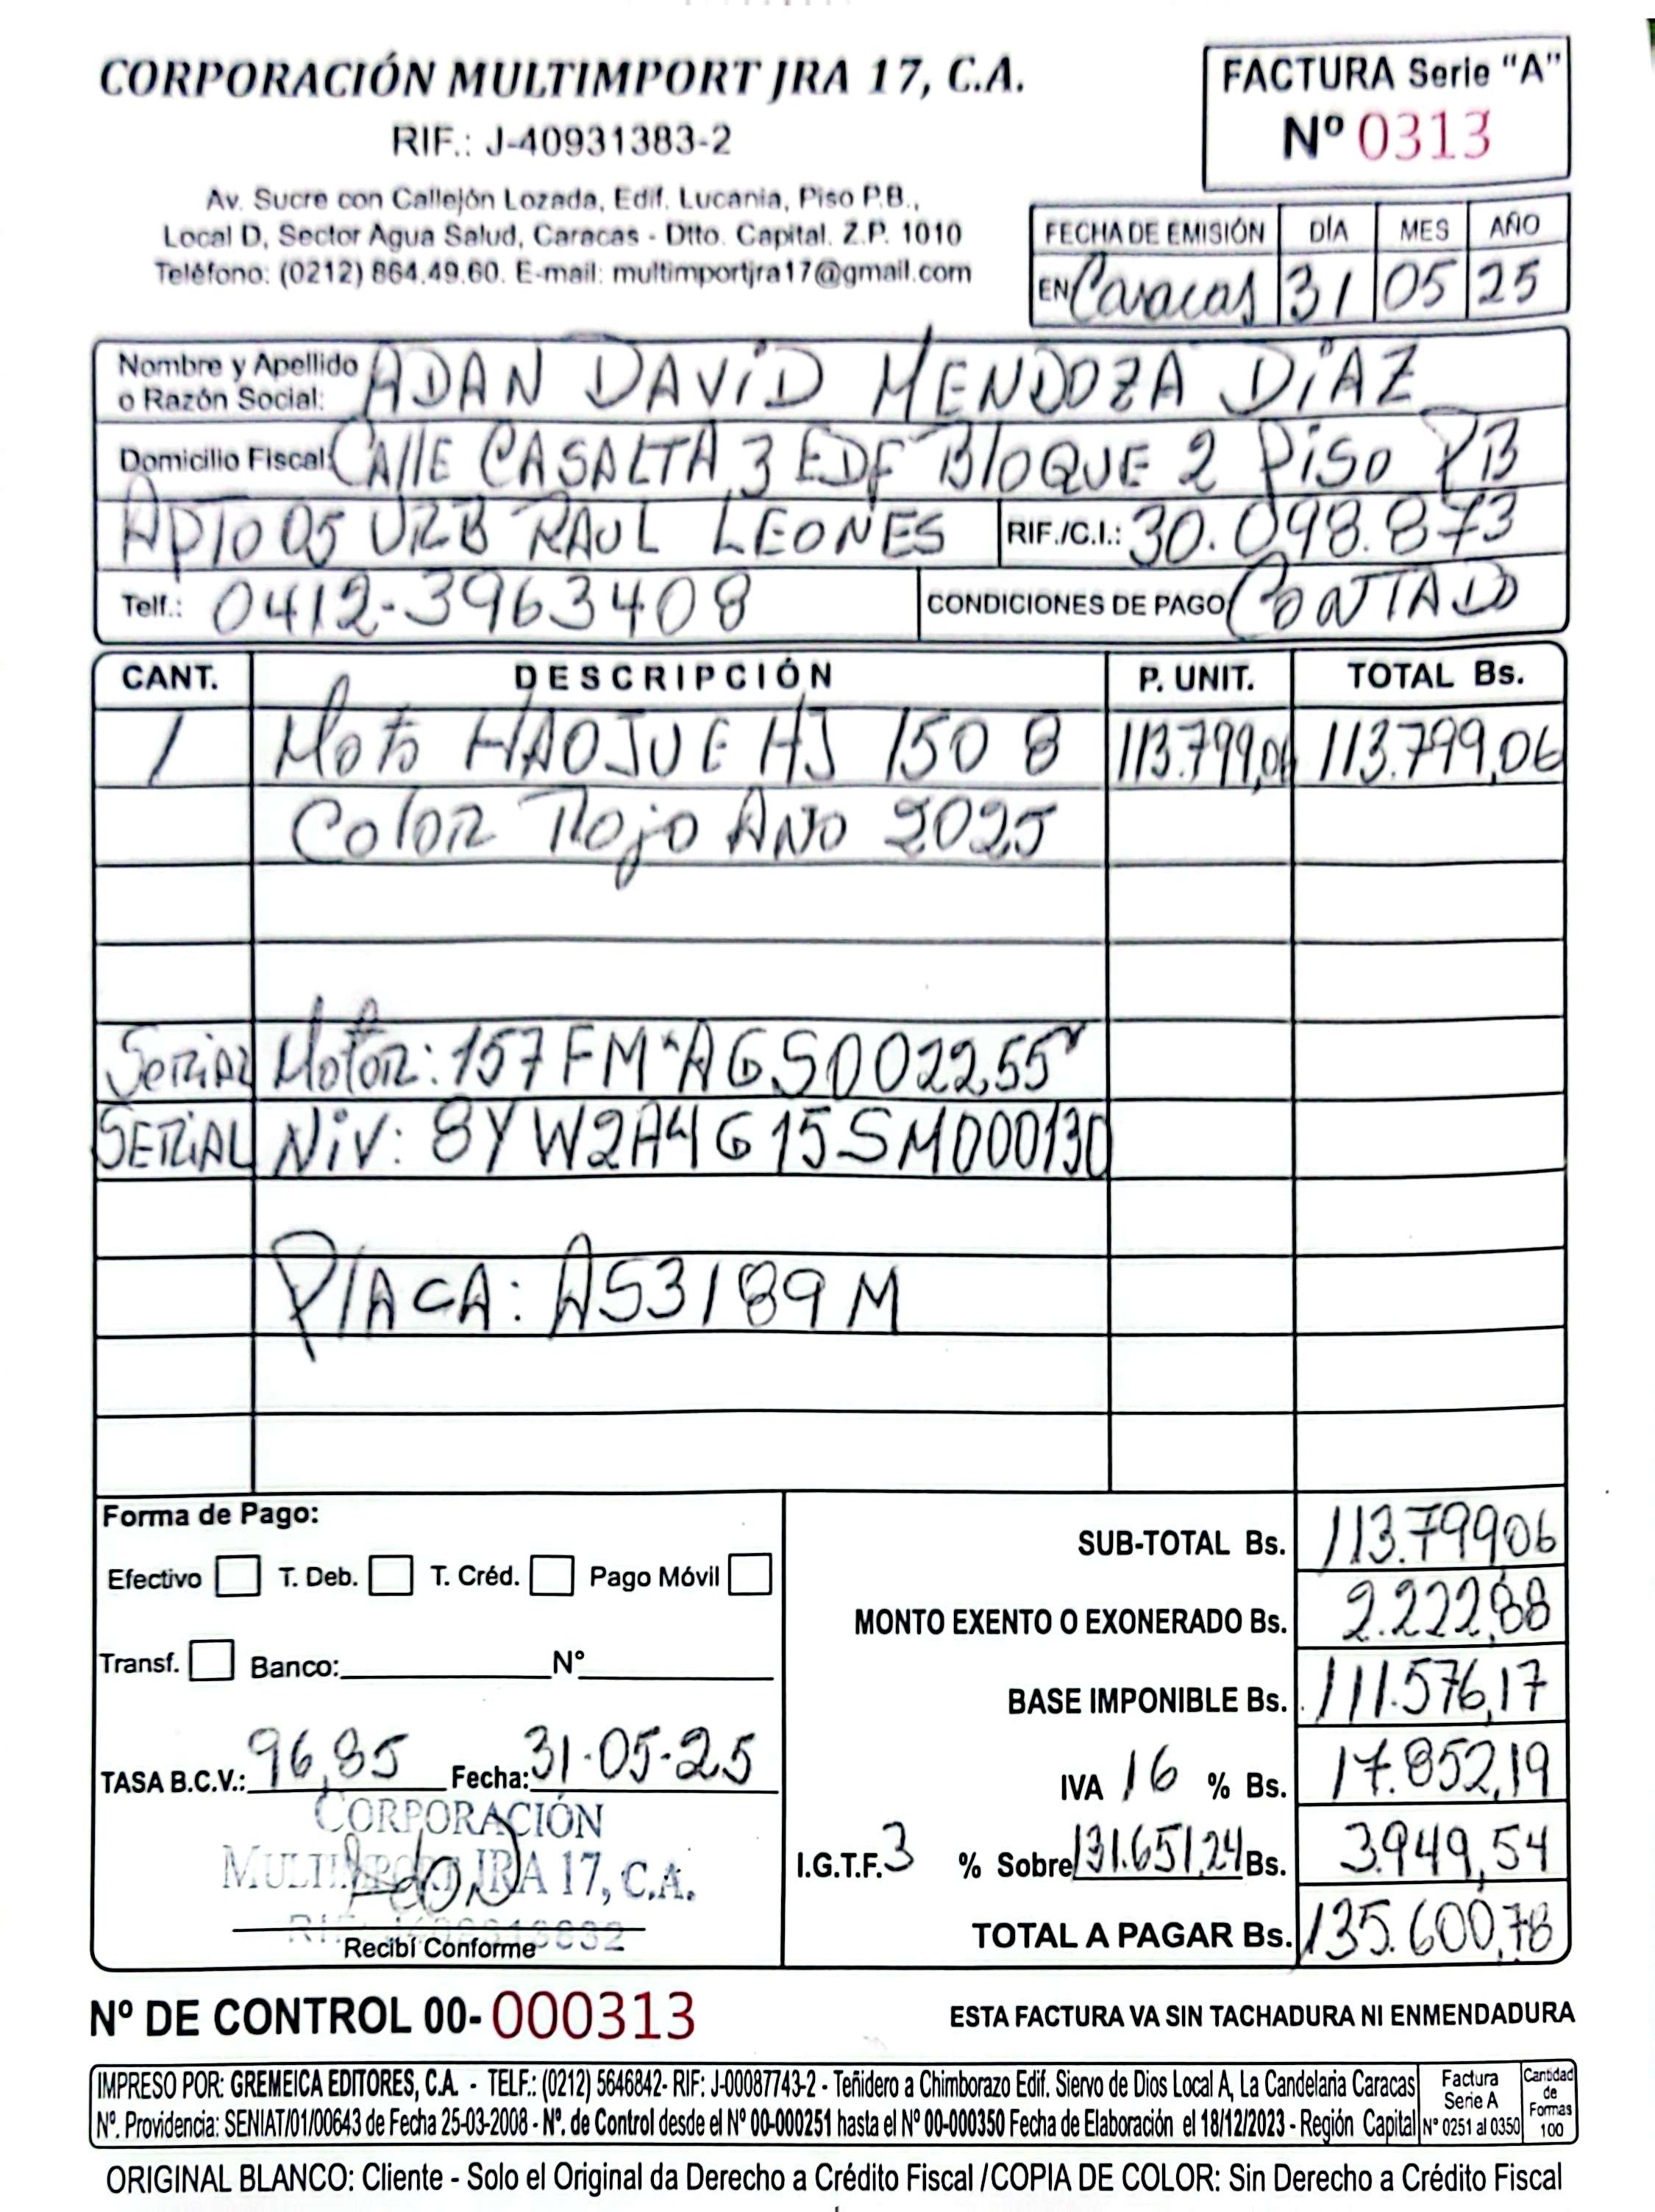 CORPORACIÓN MULTIMPORT JRA 17, C.A.
RIF.: J-40931383-2
Av. Sucre con Callejón Lozada, Edif. Lucania, Piso P.B.,
Local D, Sector Agua Salud, Caracas - Dtto. Capital. Z.P. 1010
Teléfono: (0212) 864.49.60. E-mail: multimportjra17@gmail.com
FACTURA Serie "A"
Nº 0313
FECHA DE EMISIÓN DÍA MES AÑO
EN Caracas 31 05 25
Nombre y Apellido o Razón Social: ADAN DAViD MENDOZA DiAZ
Domicilio Fiscal: CAllE CASALTA 3 EDF BloQUE 2 PiSo PB
APTO 05 URB RAUL LEONES RIF./C.I.: 30.098.873
Telf.: 0412-3963408 CONDICIONES DE PAGO CONTADO
CANT. DESCRIPCIÓN P. UNIT. TOTAL Bs.
1 Moto HAOJUE HJ 150 8 113.799,06 113.799,06
Color Rojo AÑO 2025
Serial Motor: 157FM*A6S002255*
SERiAL NiV: 8YW2A4G15SM000130
PlACA: A53189M
Forma de Pago:
Efectivo T. Deb. T. Créd. Pago Móvil
Transf. Banco: N°
TASA B.C.V.: 96,85 Fecha: 31-05-25
CORPORACIÓN
MULTIMPORT JRA 17, C.A.
Recibí Conforme
SUB-TOTAL Bs. 113.79906
MONTO EXENTO O EXONERADO Bs. 2.222,88
BASE IMPONIBLE Bs. 111.576,17
IVA 16 % Bs. 17.852,19
I.G.T.F. 3 % Sobre 131.651,24 Bs. 3.949,54
TOTAL A PAGAR Bs. 135.600,78
Nº DE CONTROL 00-000313
ESTA FACTURA VA SIN TACHADURA NI ENMENDADURA
IMPRESO POR: GREMEICA EDITORES, C.A. - TELF.: (0212) 5646842- RIF: J-00087743-2 - Teñidero a Chimborazo Edif. Siervo de Dios Local A, La Candelaria Caracas
Nº. Providencia: SENIAT/01/00643 de Fecha 25-03-2008 - Nº. de Control desde el Nº 00-000251 hasta el Nº 00-000350 Fecha de Elaboración el 18/12/2023 - Región Capital
Factura
Serie A
N° 0251 al 0350
Cantidad
de
Formas
100
ORIGINAL BLANCO: Cliente - Solo el Original da Derecho a Crédito Fiscal /COPIA DE COLOR: Sin Derecho a Crédito Fiscal